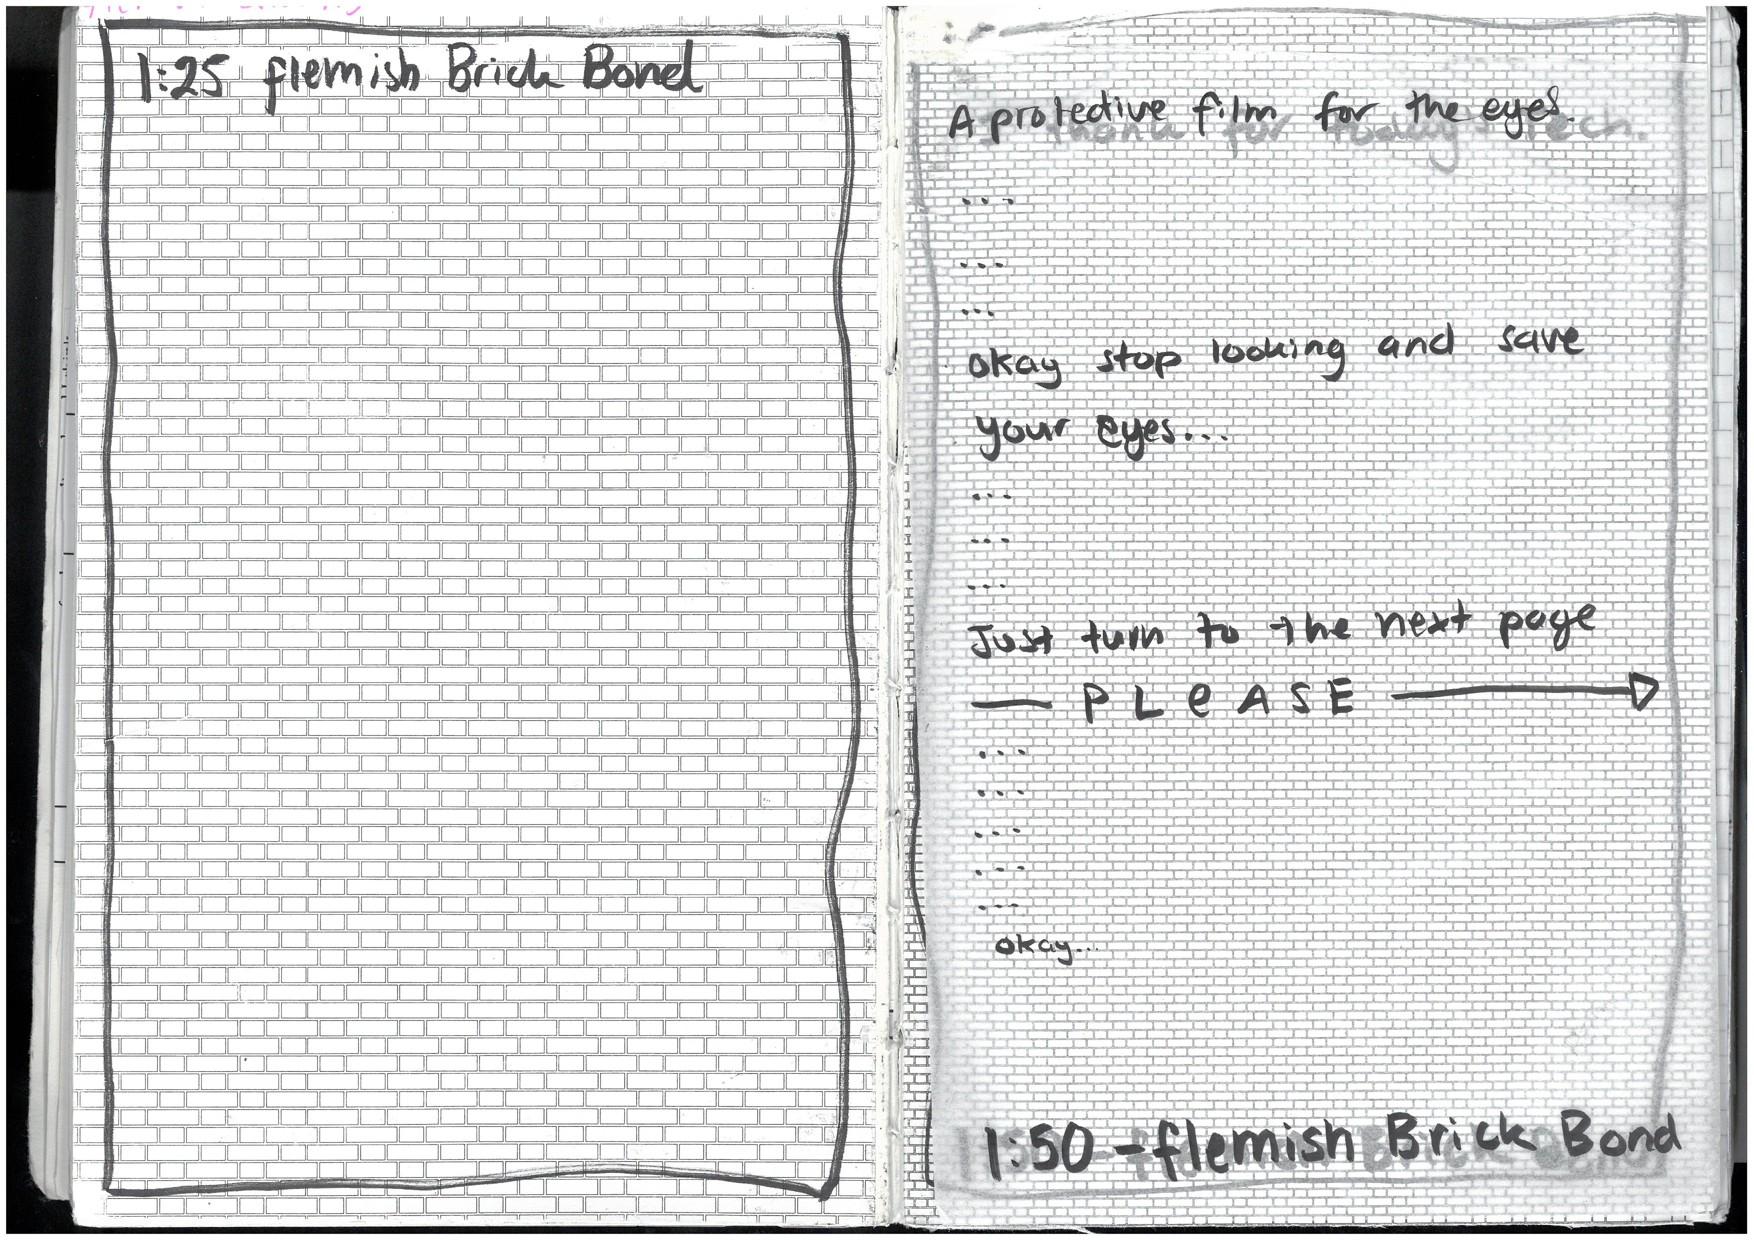 1:25 flemish Brick Bond
A protective film for the eyes.
...
...
...
okay stop looking and save
your eyes...
...
...
...
Just turn to the next page
— PLeASE →
...
...
...
...
...
okay...
1:50 - flemish Brick Bond